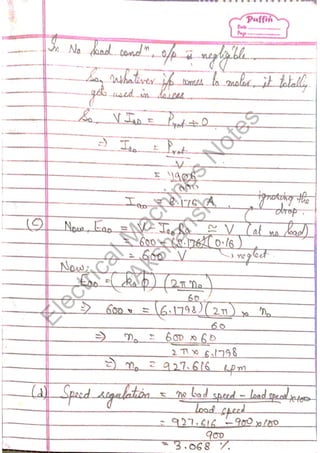 Puffin
Date
Page
In No load condⁿ, o/p is negligible.
So, whatever i/p comes to motor, it totally
get used in losses.
So, V Iao = Prot + 0
=> Iao = Prot
V
=
600
Iao = 8.176 A.
ignoring the
drop.
(c) Now, Eao = V - Iao Ra ≅ V (at no load)
= 600 - (8.176)(0.16)
= 600 V
neglect
Now;
Eao = (kaφ) (2π no)
60
=> 600 = (6.1798)(2π) × no
60
=> no = 600 × 60
2π × 6.1798
=> no = 927.616 rpm
(d) Speed regulation = no load speed - load speed × 100
load speed
= 927.616 - 900 × 100
900
= 3.068 %.
Electrical Machines Notes